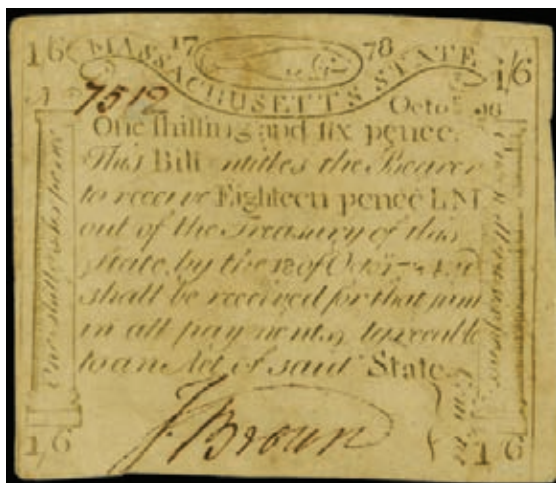 1/6 17 78 1/6
MASSACHUSETTS STATE
7512
One shilling and six pence.
This Bill entitles the Bearer
to receive Eighteen pence LM
out of the Treasury of this
State, by the 18 of Octr
shall be received for that sum
in all payments, agreeable
to an Act of said State.
J. Brown
1/6 1/6